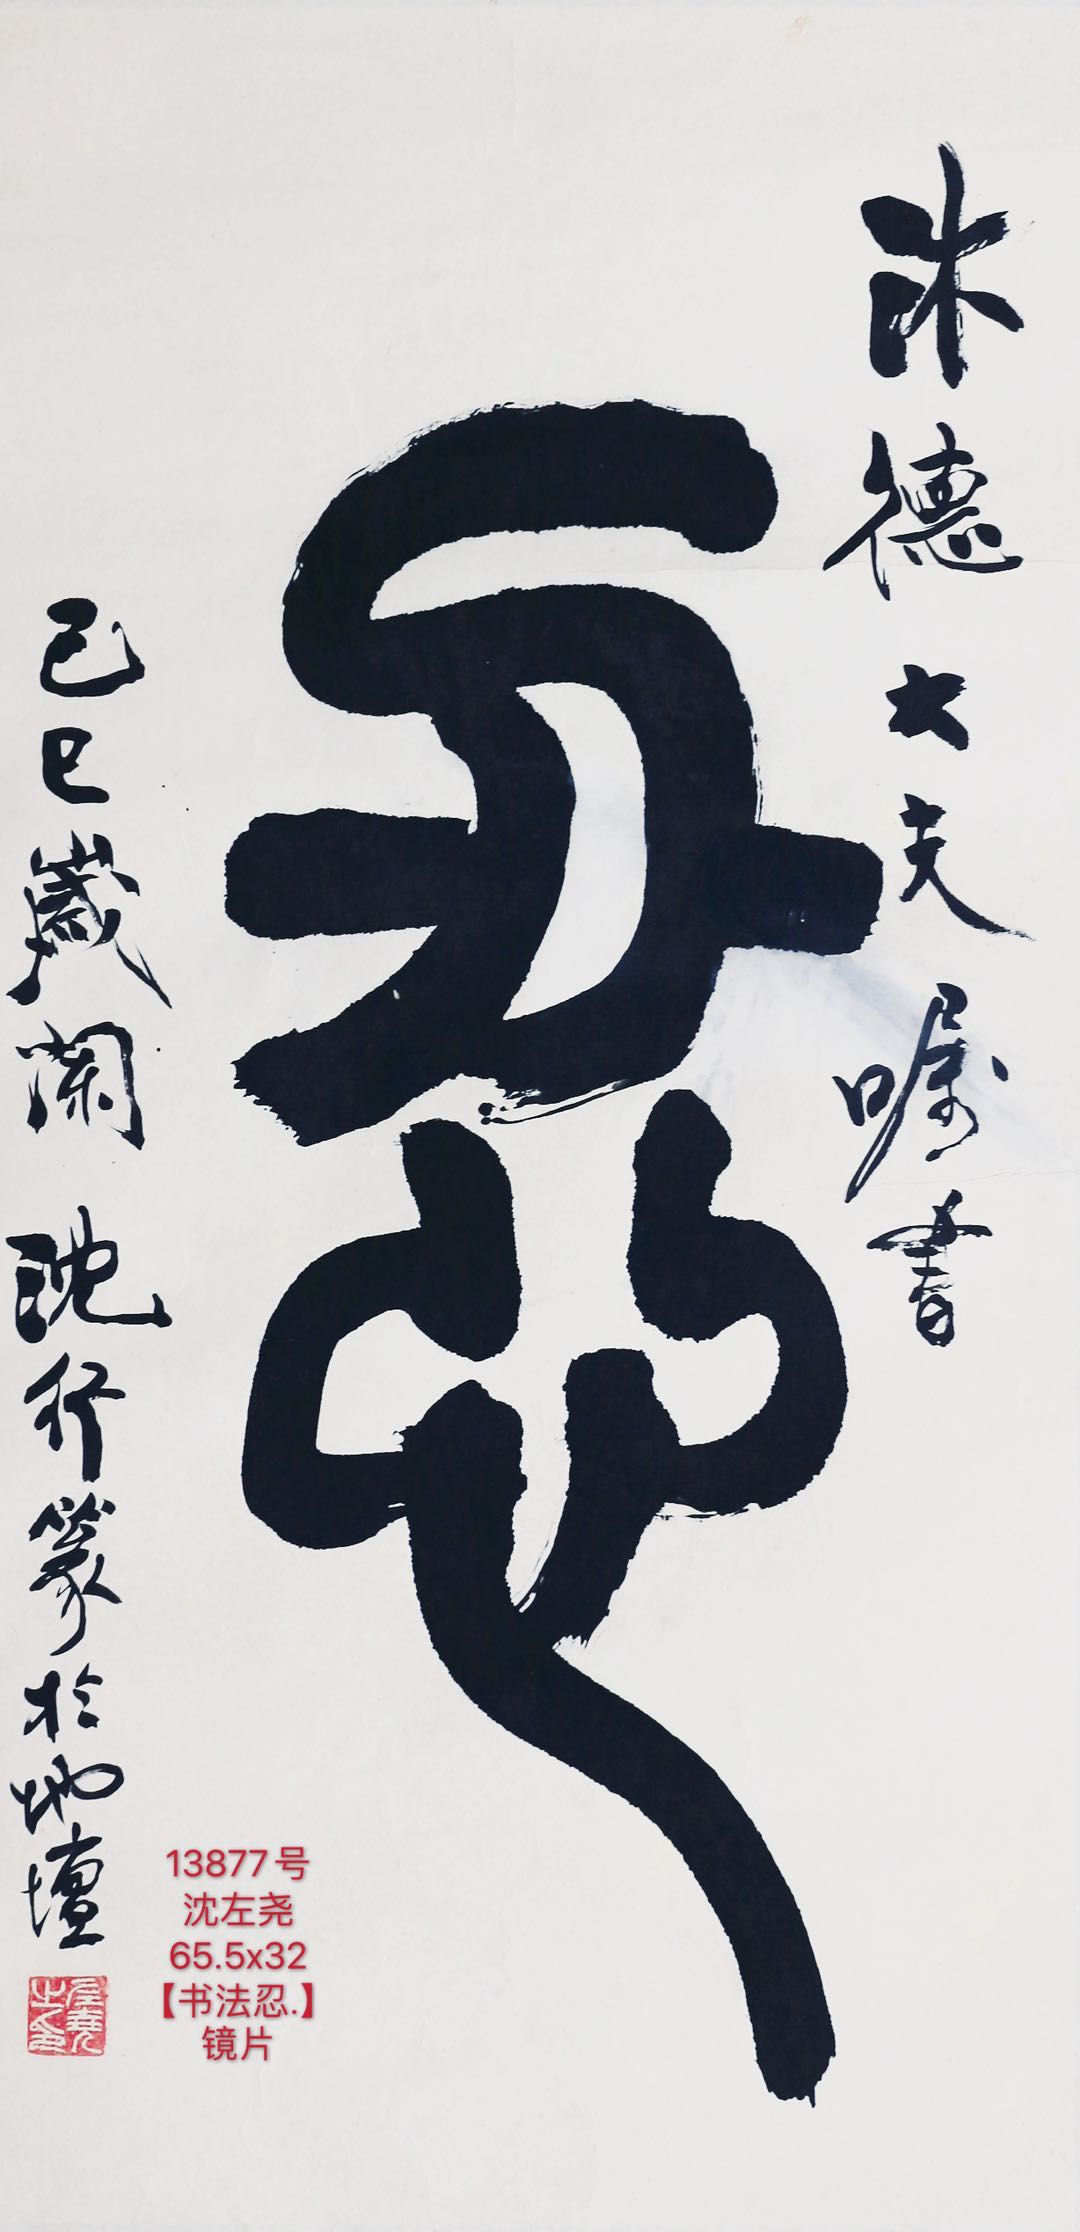 沐德大夫嘱書
忍
己巳歲闌 沈行篆於地壇
左堯之印
13877号
沈左尧
65.5x32
【书法忍.】
镜片